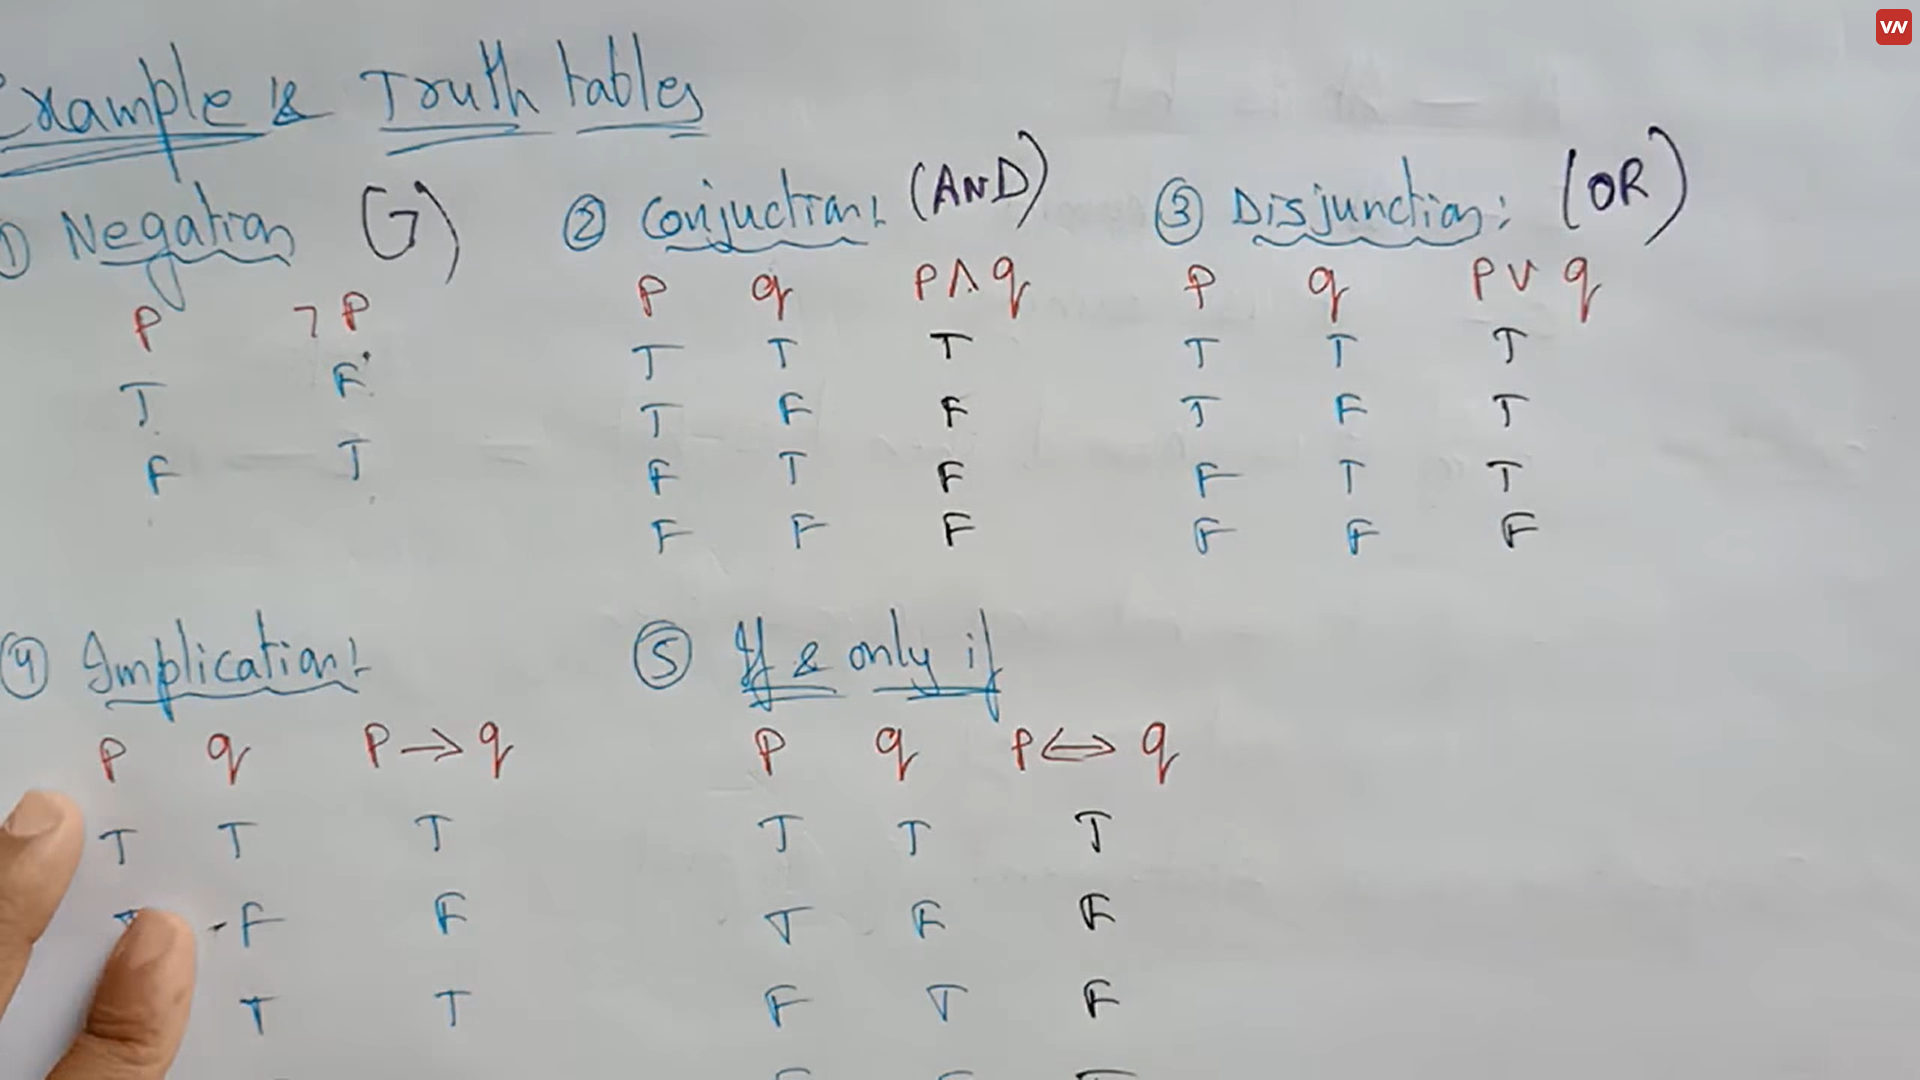 Example & Truth tables
① Negation (¬)
P ¬P
T F
F T
② Conjuction: (AND)
P q P∧q
T T T
T F F
F T F
F F F
③ Disjunction: (OR)
P q P∨q
T T T
T F T
F T T
F F F
④ Implication:
P q P→q
T T T
T F F
T T
⑤ If & only if
P q P<=>q
T T T
T F F
F T F
VN